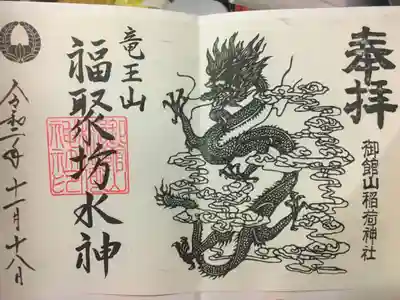 奉拝
御館山稲荷神社
竜王山
福聚坊水神
令和二年十一月十八日